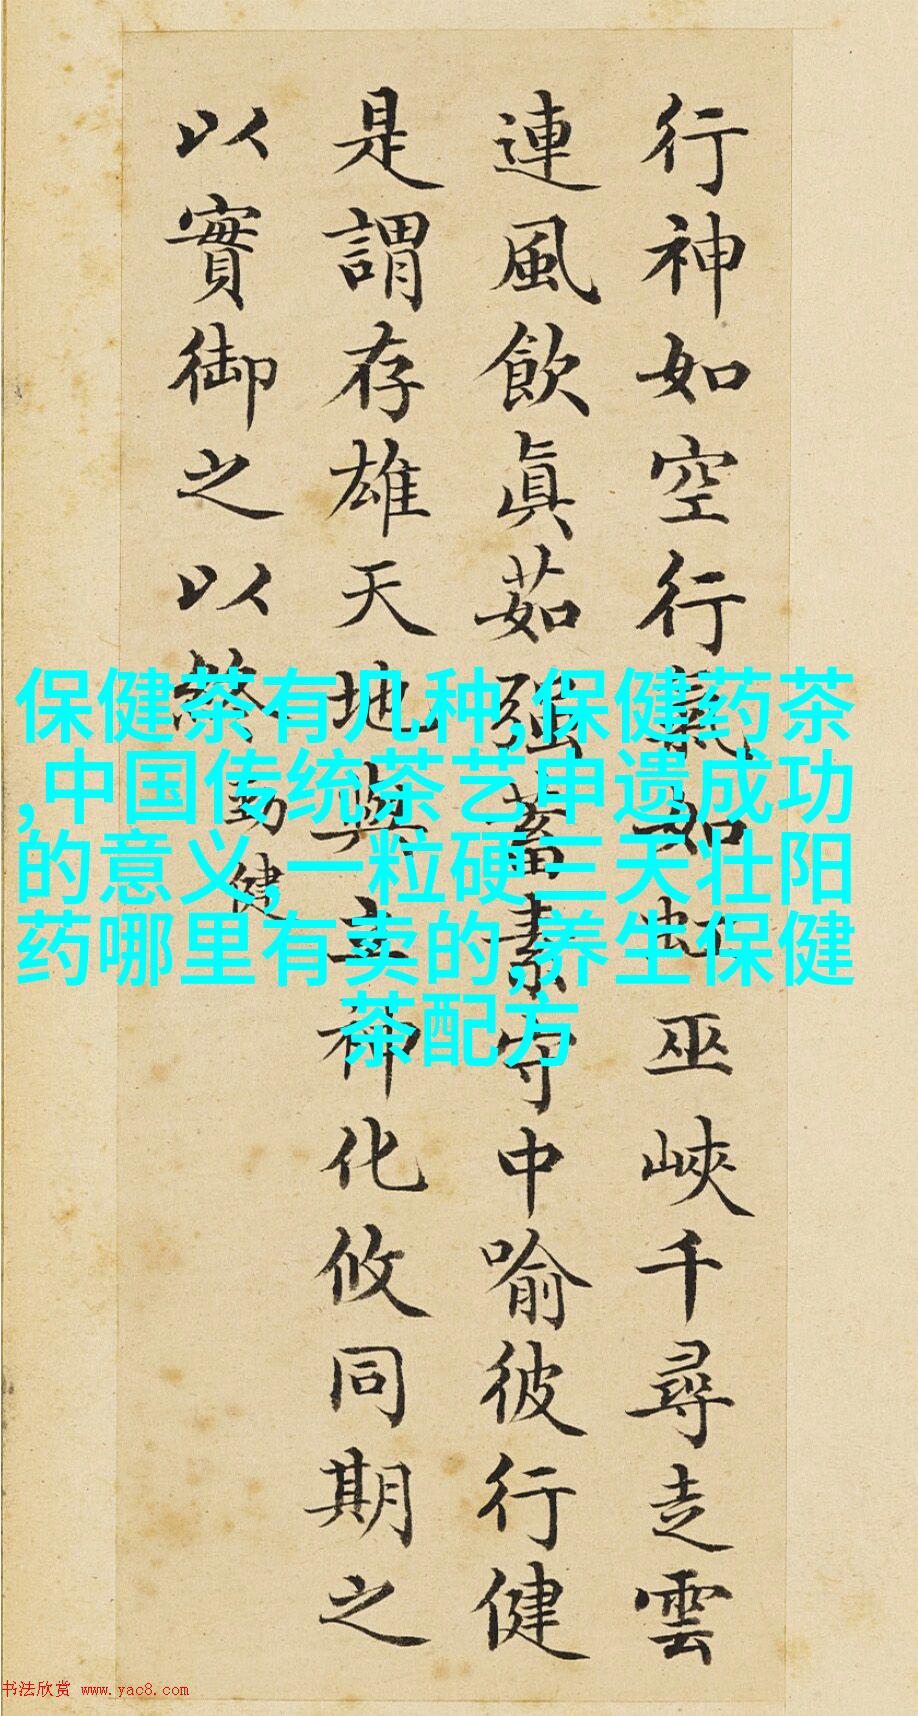 行神如空行氣如虹巫峽千尋走雲
連風飲眞茹强蓄素守中喻彼行健
是謂存雄天地與立神化攸同期之
以實御之以終
勁健
保健茶有几种,保健药茶
,中国传统茶艺申遗成功
的意义,一粒硬三天壮阳
药哪里有卖的,养生保健
茶配方
书法欣赏 www.yac8.com